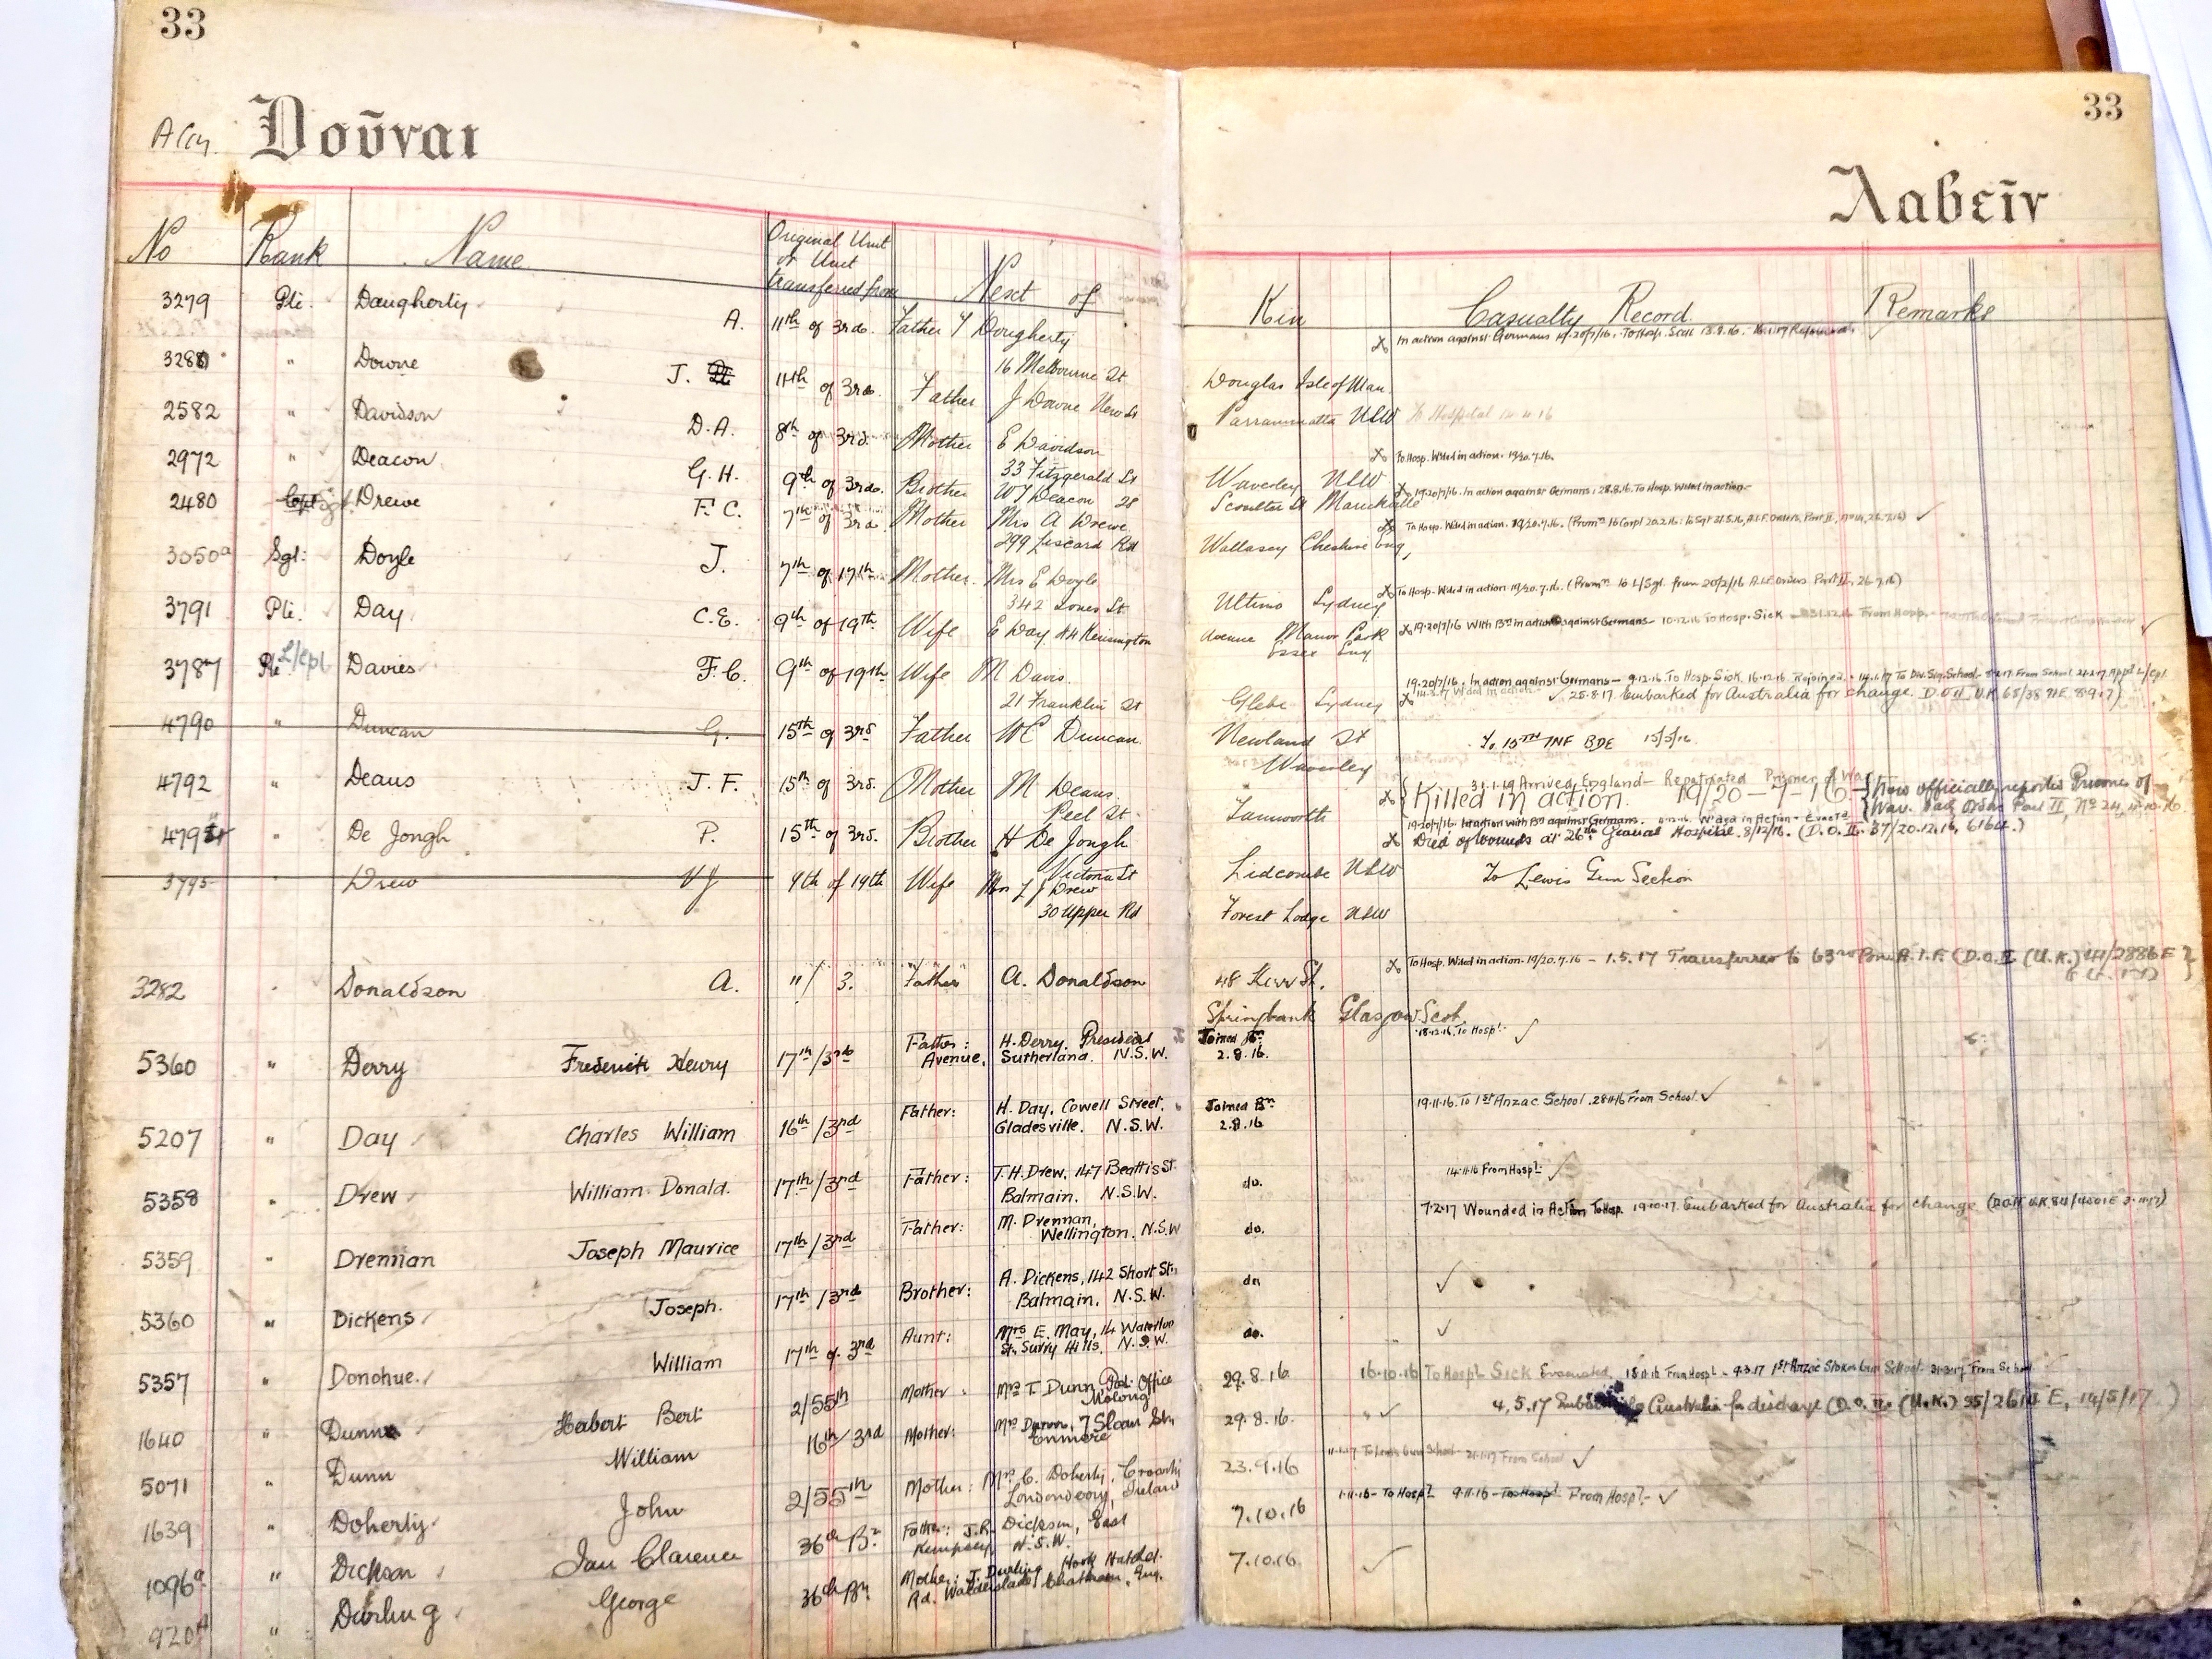 33
33
Δοῦναι
Λαβεῖν
No Rank Name Original Unit or Unit transferred from Next of Kin Casualty Record Remarks
3279 Pte. Daugherty A. 11th of 3rd. Father Dougherty
16 Melbourne St Douglas Isle of Man
In action against Germans 19.20/7/16. To Hosp. Sick 13.9.16.
" Downe J. 11th of 3rd. Father J Downe New St Parramatta NSW
To Hospital
2582 " Davidson D.A. 8th of 3rd. Mother E Davidson
33 Fitzgerald St Waverley NSW
To Hosp. Wded in action. 19/20.7.16.
2972 " Deacon G.H. 9th of 3rd. Brother W J Deacon 28
19.20/7/16. In action against Germans: 28.8.16. To Hosp. Wded in action.
2480 Sgt Drewe F.C. 7th of 3rd Mother Mrs A Drewe
299 Liscard Rd Wallasey Cheshire Eng,
To Hosp. Wded in action. 19/20.7.16. (Promn to Corpl 20.2.16: to Sgt 31.5.16, A.I.F. Orders, Part II, No 14, 26.7.16)
3050a Sgt: Doyle J. 7th of 17th Mother. Mrs E Doyle
342 Jones St Ultimo Sydney
To Hosp. Wded in action 19/20.7.16. (Promn to L/Sgt. from 20/2/16 A.I.F. Orders Part II, 26.7.16)
3791 Pte. Day C.E. 9th of 19th Wife E Day 84 Kensington
Avenue Manor Park
Essex Eng
19.20/7/16 With Bn in action against Germans — 10.12.16 To Hosp. Sick 31.12.16 From Hosp.
3787 Pte L/cpl Davies F.C. 9th of 19th Wife M Davis.
21 Franklin St Glebe Sydney
19.20/7/16. In action against Germans — 9.12.16. To Hosp. Sick. 16.12.16. Rejoined. 14.1.17 To Div. Sig. School. From School 24.2.17 Appd L/Cpl
Wded in action. 25.8.17 Embarked for Australia for change. D.O. II. U.K 65/38 71E. 8.9.17)
4790 " Duncan G. 15th of 3rd Father W E Duncan.
Newland St
Waverley
To 15TH INF BDE 15/5/16
4792 " Deans J.F. 15th of 3rd. Mother M Deans
Peel St Tamworth
31.1.19 Arrived England — Repatriated Prisoner of War
Killed in action. 19/20–7–16 — Now officially reported Prisoner of
War. Part II, No 24,
" De Jongh P. 15th of 3rd. Brother H De Jongh
Victoria St Lidcombe NSW
19.20/7/16. In action with Bn against Germans. Wded in Action - Evacd
Died of wounds at 26th General Hospital. 8/12/16. (D.O. II. 37/20.12.16, 6164.)
3795 " Drew V J 9th of 19th Wife Mrs L J Drew
30 Upper Rd Forest Lodge NSW
To Lewis Gun Section
3282 " Donaldson A. 11/3. Father A. Donaldson 48 Kerr St.
Springbank Glasgow Scot.
To Hosp. Wded in action. 19/20.7.16 — 1.5.17 Transferred to 63rd Bn A.I.F. (D.O.II (U.K.) 44/2886 E
5360 " Derry Frederick Henry 17th/3rd Father: H. Derry. President
Avenue, Sutherland. N.S.W.
Joined Bn 2.8.16.
18.12.16. To Hospl.
5207 " Day Charles William 16th/3rd Father: H. Day, Cowell Street,
Gladesville. N.S.W.
Joined Bn 2.8.16
19.11.16. To 1st Anzac School. 28.11.16 From School.
5358 " Drew William Donald. 17th/3rd Father: T.H. Drew, 147 Beattie St.
Balmain. N.S.W.
do.
14.11.16 From Hospl.
5359 " Drennan Joseph Maurice 17th/3rd Father: M. Drennan,
Wellington. N.S.W
do.
7.2.17 Wounded in Action To Hosp. 19.10.17. Embarked for Australia for change
5360 " Dickens Joseph. 17th/3rd Brother: A. Dickens, 142 Short St.,
Balmain. N.S.W.
do
5357 " Donohue. William 17th of 3rd Aunt: Mrs E. May, 14 Waterloo
St. Surry Hills. N.S.W.
do.
1640 " Dunn Herbert Bert 2/55th Mother: Mrs T. Dunn, Post Office
Molong
29.8.16
16.10.16 To Hospl. Sick Evacuated. 18.11.16 From Hospl. - 9.3.17 1st Anzac Stokes Gun School. 31.3.17 From School
5071 " Dunn William 16th/3rd Mother: Mrs Dunn, 7 Sloan St.,
Enmore
29.8.16.
4.5.17 Australia for discharge (D.O. II. (U.K.) 35/2614 E, 14/5/17)
1639 " Doherty John 2/55th Mother: Mrs C. Doherty,
Londonderry, Ireland
23.9.16
To Lewis Gun School 21.1.17 From School
1096a " Dickson Ian Clarence 36th Bn Father: J.R. Dickson, East
Kempsey N.S.W.
7.10.16
1.11.16 - To Hospl. 9.11.16 - To Hospl. From Hospl.
920A " Durling George 36th Bn Mother: J. Durling, Hook
Rd. Walderslade, Chatham, Eng.
7.10.16.